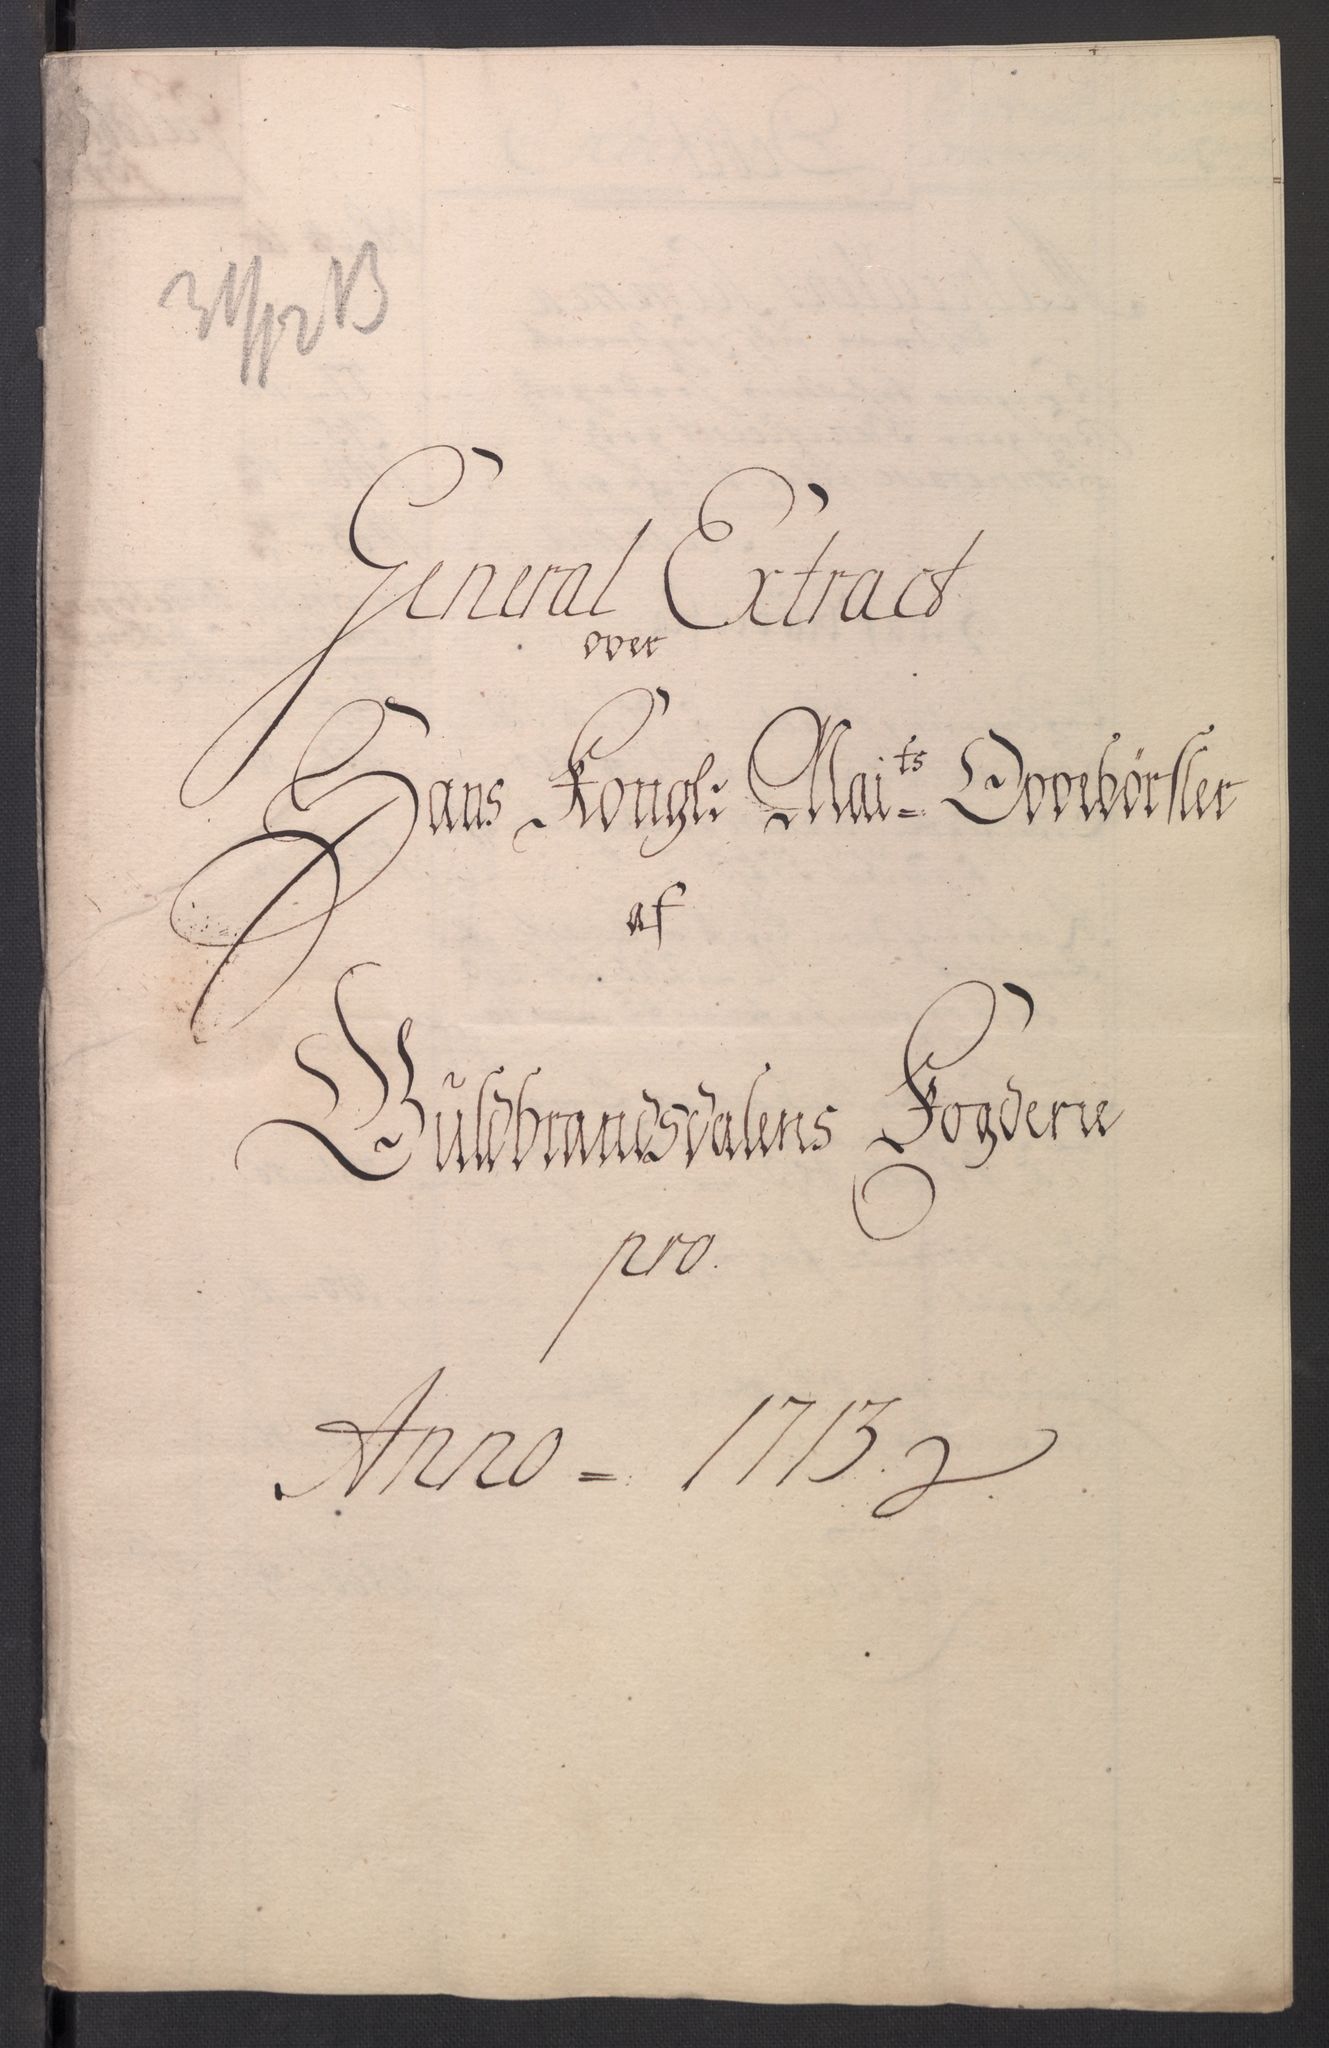 31/12 B
General Extract
over
Hans Kongl: Maits Opvebörsler
af
Guldbrandsdalens Fogderie
pro.
Anno = 1713.